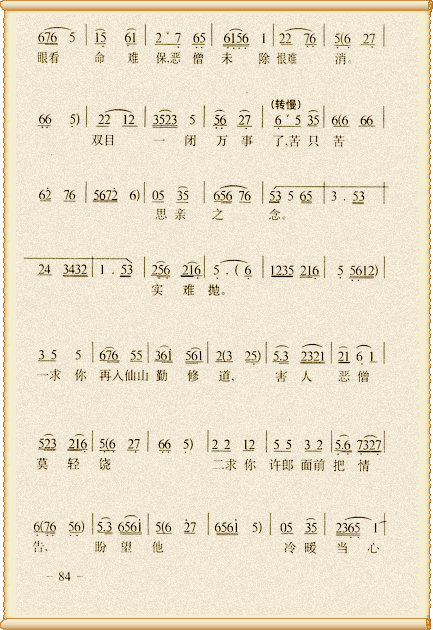 676 5 | 15 61 | 2·7 65 | 6156 1 | 22 76 | 5(6 27 |
眼看 命 难 保,恶 僧 未 除 恨难 消。
(转慢)
66 5) | 22 12 | 3523 5 | 56 27 | 6·5 35 | 6(6 66 |
双目 一 闭 万 事 了,苦 只 苦
62 76 | 5672 6) | 05 35 | 656 76 | 53 5 65 | 3 . 53 |
思 亲 之 念。
24 3432 | 1 . 53 | 256 216 | 5 .( 6 | 1235 216 | 5 5612) |
实 难 抛。
3 5 5 | 676 55 | 361 561 | 2(3 25) | 5.3 2321 | 21 6 1 |
一求 你 再入仙山 勤 修 道、 害 人 恶 僧
523 216 | 5(6 27 | 66 5) | 2 2 12 | 5 5 3 2 | 5.6 7327 |
莫 轻 饶 二求 你 许郎 面前 把 情
6(76 56) | 5.3 6561 | 5(6 27 | 6561 5) | 05 35 | 2365 1 |
告, 盼 望 他 冷 暖 当 心
- 84 -